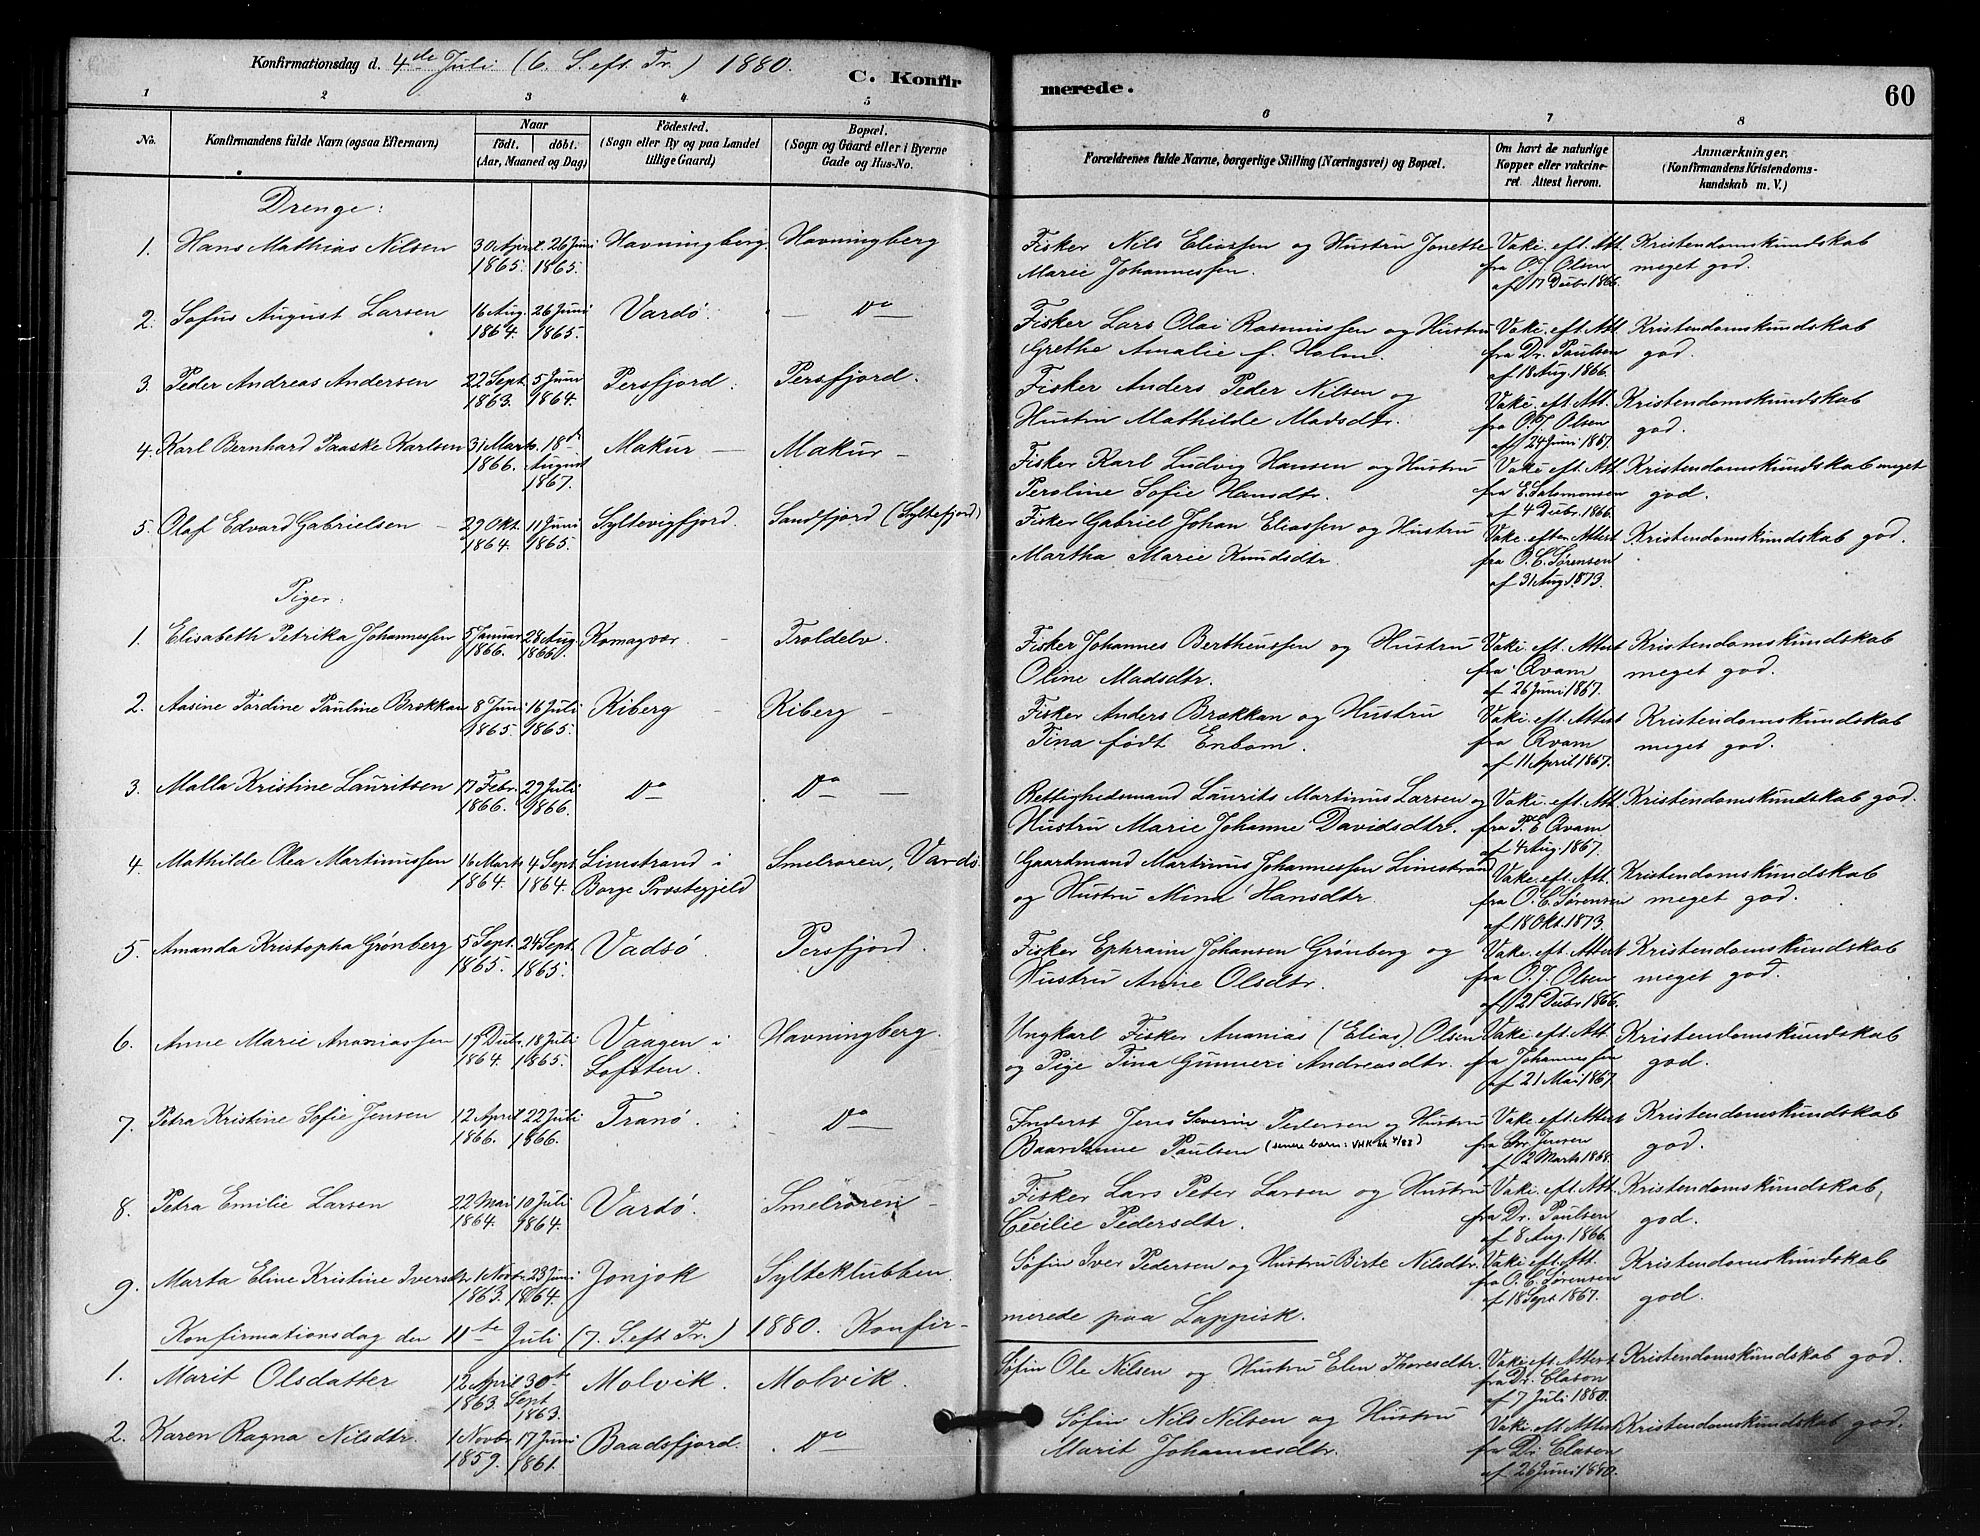 Konfirmationsdag d. 4de Juli (6. S. eft. Tr.) 1880.
C. Konfirmerede.
60
1 2 3 4 5 6 7 8
No.
Konfirmandens fulde Navn (ogsaa Efternavn)
Naar
födt. döbt.
(Aar, Maaned og Dag)
Födested.
(Sogn eller By og paa Landet
tillige Gaard)
Bopæl.
(Sogn og Gaard eller i Byerne
Gade og Hus-No.
Forældrenes fulde Navne, borgerlige Stilling (Næringsvei) og Bopæl.
Om havt de naturlige
Kopper eller vakcine-
ret. Attest herom.
Anmærkninger.
(Konfirmandens Kristendoms-
kundskab m. V.)
Drenge:
1. Hans Mathias Nilsen 30 April 1865. 26 Juni 1865. Havningberg Havningberg
Fisker Nils Eliassen og Hustru Jonette
Marie Johannessen.
Vakc. eft. Att.
fra O. J. Olsen
af 17 Decbr 1866.
Kristendomskundskab
meget god.
2. Sofus August Larsen 16 Aug. 1864. 26 Juni 1865. Vardö. — Do —
Fisker Lars Olai Rasmussen og Hustru
Grethe Amalie f. Holm.
Vakc. eft. Att.
fra Dr. Paulsen
af 18 Aug. 1866.
Kristendomskundskab
god.
3. Peder Andreas Andersen 22 Sept 1863. 5 Juni 1864. Persfjord. Persfjord.
Fisker Anders Peder Nilsen og
Hustru Mathilde Madsdtr.
Vakc. eft. Att.
fra O. J. Olsen
af 24 Juni 1867.
Kristendomskundskab
god.
4. Karl Bernhard Paaske Karlsen 31 Marts 1866. 18de August 1867. Makur — Makur —
Fisker Karl Ludvig Hansen og Hustru
Peroline Sofie Hansdtr.
Vakc. eft. Att.
fra E. Salomonsen
af 4 Decbr. 1866.
Kristendomskundskab meget
god.
5. Olaf Edvard Gabrielsen — 29 Okt. 1864. 11 Juni 1865. Syltevigfjord. Sandfjord (Syltefjord)
Fisker Gabriel Johan Eliassen og Hustru
Martha Marie Knudsdtr.
Vakc. efter Attest
fra O. C. Sørensen
af 31 Aug. 1873.
Kristendomskundskab god.
Piger:
1. Elisabeth Petrika Johannessen 5 Januar 1866. 28 Aug. 1866. Komagvær — Troldelv.
Fisker Johannes Bertheussen og Hustru
Oline Madsdtr.
Vakc. eft. Attest
fra Qvam
af 26 Juni 1867.
Kristendomskundskab
meget god.
2. Aasine Tardine Pauline Brækkan 8 Juni 1865. 16 Juli 1865. Kiberg — Kiberg —
Fisker Anders Brækkan og Hustru
Tina født Enbom.
Vakc. eft. Attest
fra Qvam
af 11 April 1867.
Kristendomskundskab
meget god.
3. Malla Kristine Lauritsen 17 Febr. 1866. 29 Juli 1866. Do — Do —
Rettighedsmand Laurits Martinus Larsen og
Hustru Marie Johanne Davidsdtr.
Vakc. eft. Att.
fra P. E. Qvam
af 4 Aug. 1867.
Kristendomskundskab god.
4. Mathilde Olea Martinussen 16 Marts 1864. 4 Sept. 1864. Limstrand i
Borge Præstegjeld Smelroren, Vardö.
Gaardmand Martinus Johannessen Limstrand
og Hustru Mina Hansdtr.
Vakc. eft. Att.
fra O. C. Sørensen
af 18 Okt. 1873.
Kristendomskundskab
meget god.
5. Amanda Kristopha Grønberg 5 Sept. 1865. 24 Sept. 1865. Vadsö. Persfjord.
Fisker Ephraim Johansen Grønberg og
Hustru Anne Olsdtr.
Vakc. eft. Attest
fra O. J. Olsen
af 21 Decbr 1866.
Kristendomskundskab
meget god.
6. Anne Marie Ananiassen 19 Decbr. 1864. 18 Juli 1865. Vaagen i
Lofoten. Havningberg.
Ungkarl Fisker Ananias (Elias) Olsen
og Pige Tina Gunneri Andreasdtr.
Vakc. eft. Att.
fra Johannessen
af 21 Mai 1867.
Kristendomskundskab
god.
7. Petra Kristine Sofie Jensen 12 April 1866. 22 Juli 1866. Tranö. Do —
Inderst Jens Severin Pedersen og Hustru
Baardine Paulsen
Vakc. eft. Attest
fra Chr. Jensen
af 2 Marts 1868.
Kristendomskundskab
god.
8. Petra Emilie Larsen 22 Mai 1864. 10 Juli 1864. Vardö. Smelroren —
Fisker Lars Peter Larsen og Hustru
Cecilie Pedersdtr.
Vakc. eft. Att.
fra Dr. Paulsen
af 8 Aug. 1866.
Kristendomskundskab,
god.
9. Marta Eline Kristine Iversdtr 1 Novbr. 1863. 23 Juni 1864. Jonjok Sylteklubben.
Søfin Iver Pedersen og Hustru Birte Nilsdtr.
Vakc. eft. Att.
fra O. C. Sørensen
af 18 Sept 1867.
Kristendomskundskab
god.
Konfirmationsdag den 11te Juli (7. S. eft Tr.) 1880. Konfir-
merede paa Lappisk.
1. Marit Olsdatter 12 April 1863. 30te Sept 1863. Molvik. Molvik.
Søfin Ole Nilsen og Hustru Elen Thoresdtr.
Vakc. eft. Attest
fra Dr. Clason
af 7 Juli 1880.
Kristendomskundskab god.
2. Karen Ragna Nilsdtr. 1 Novbr 1859. 17 Juni 1861. Baadsfjord. Do —
Søfin Nils Nilsen og Hustru
Marit Johannesdtr.
Vakc. eft. Attest
fra Dr. Clason
af 26 Juni 1880.
Kristendomskundskab god.